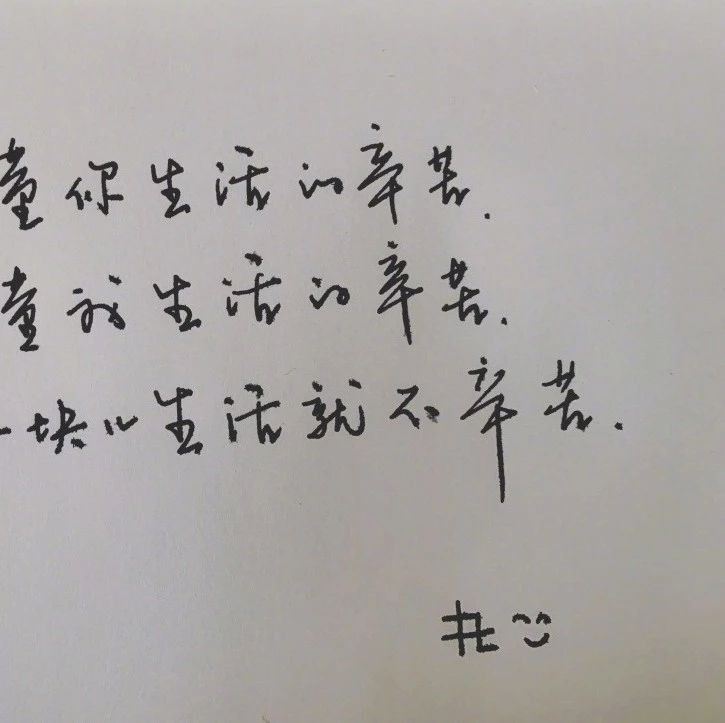 懂你生活的辛苦.
懂我生活的辛苦.
一块儿生活就不辛苦.